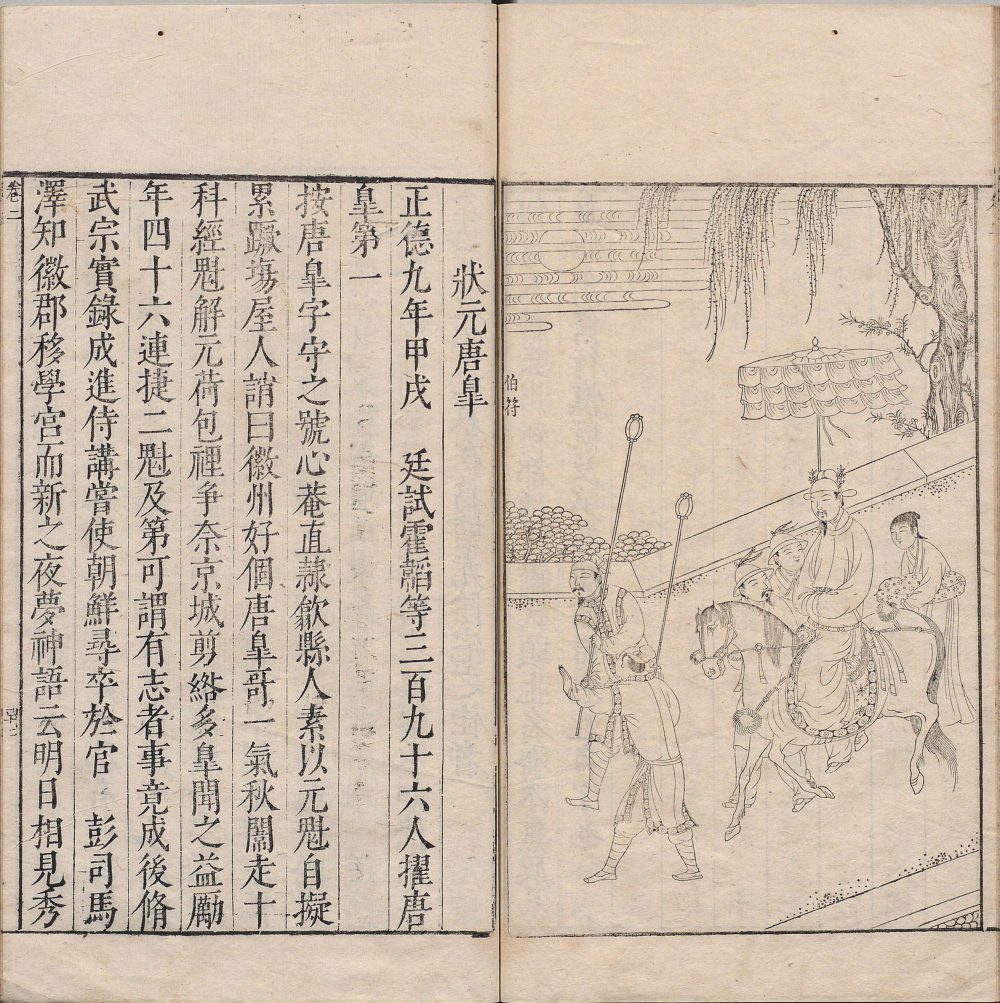 伯符
狀元唐皐
正德九年甲戌　廷試霍韜等三百九十六人擢唐
皐第一
按唐皐字守之號心菴直隸歙縣人素以元魁自擬
累蹶塲屋人誚曰徽州好個唐皐哥一氣秋闈走十
科經魁解元荷包裡争奈京城剪綹多皐聞之益勵
年四十六連捷二魁及第可謂有志者事竟成後脩
武宗實錄成進侍講嘗使朝鮮尋卒於官　彭司馬
澤知徽郡移學宮而新之夜夢神語云明日相見秀
卷二